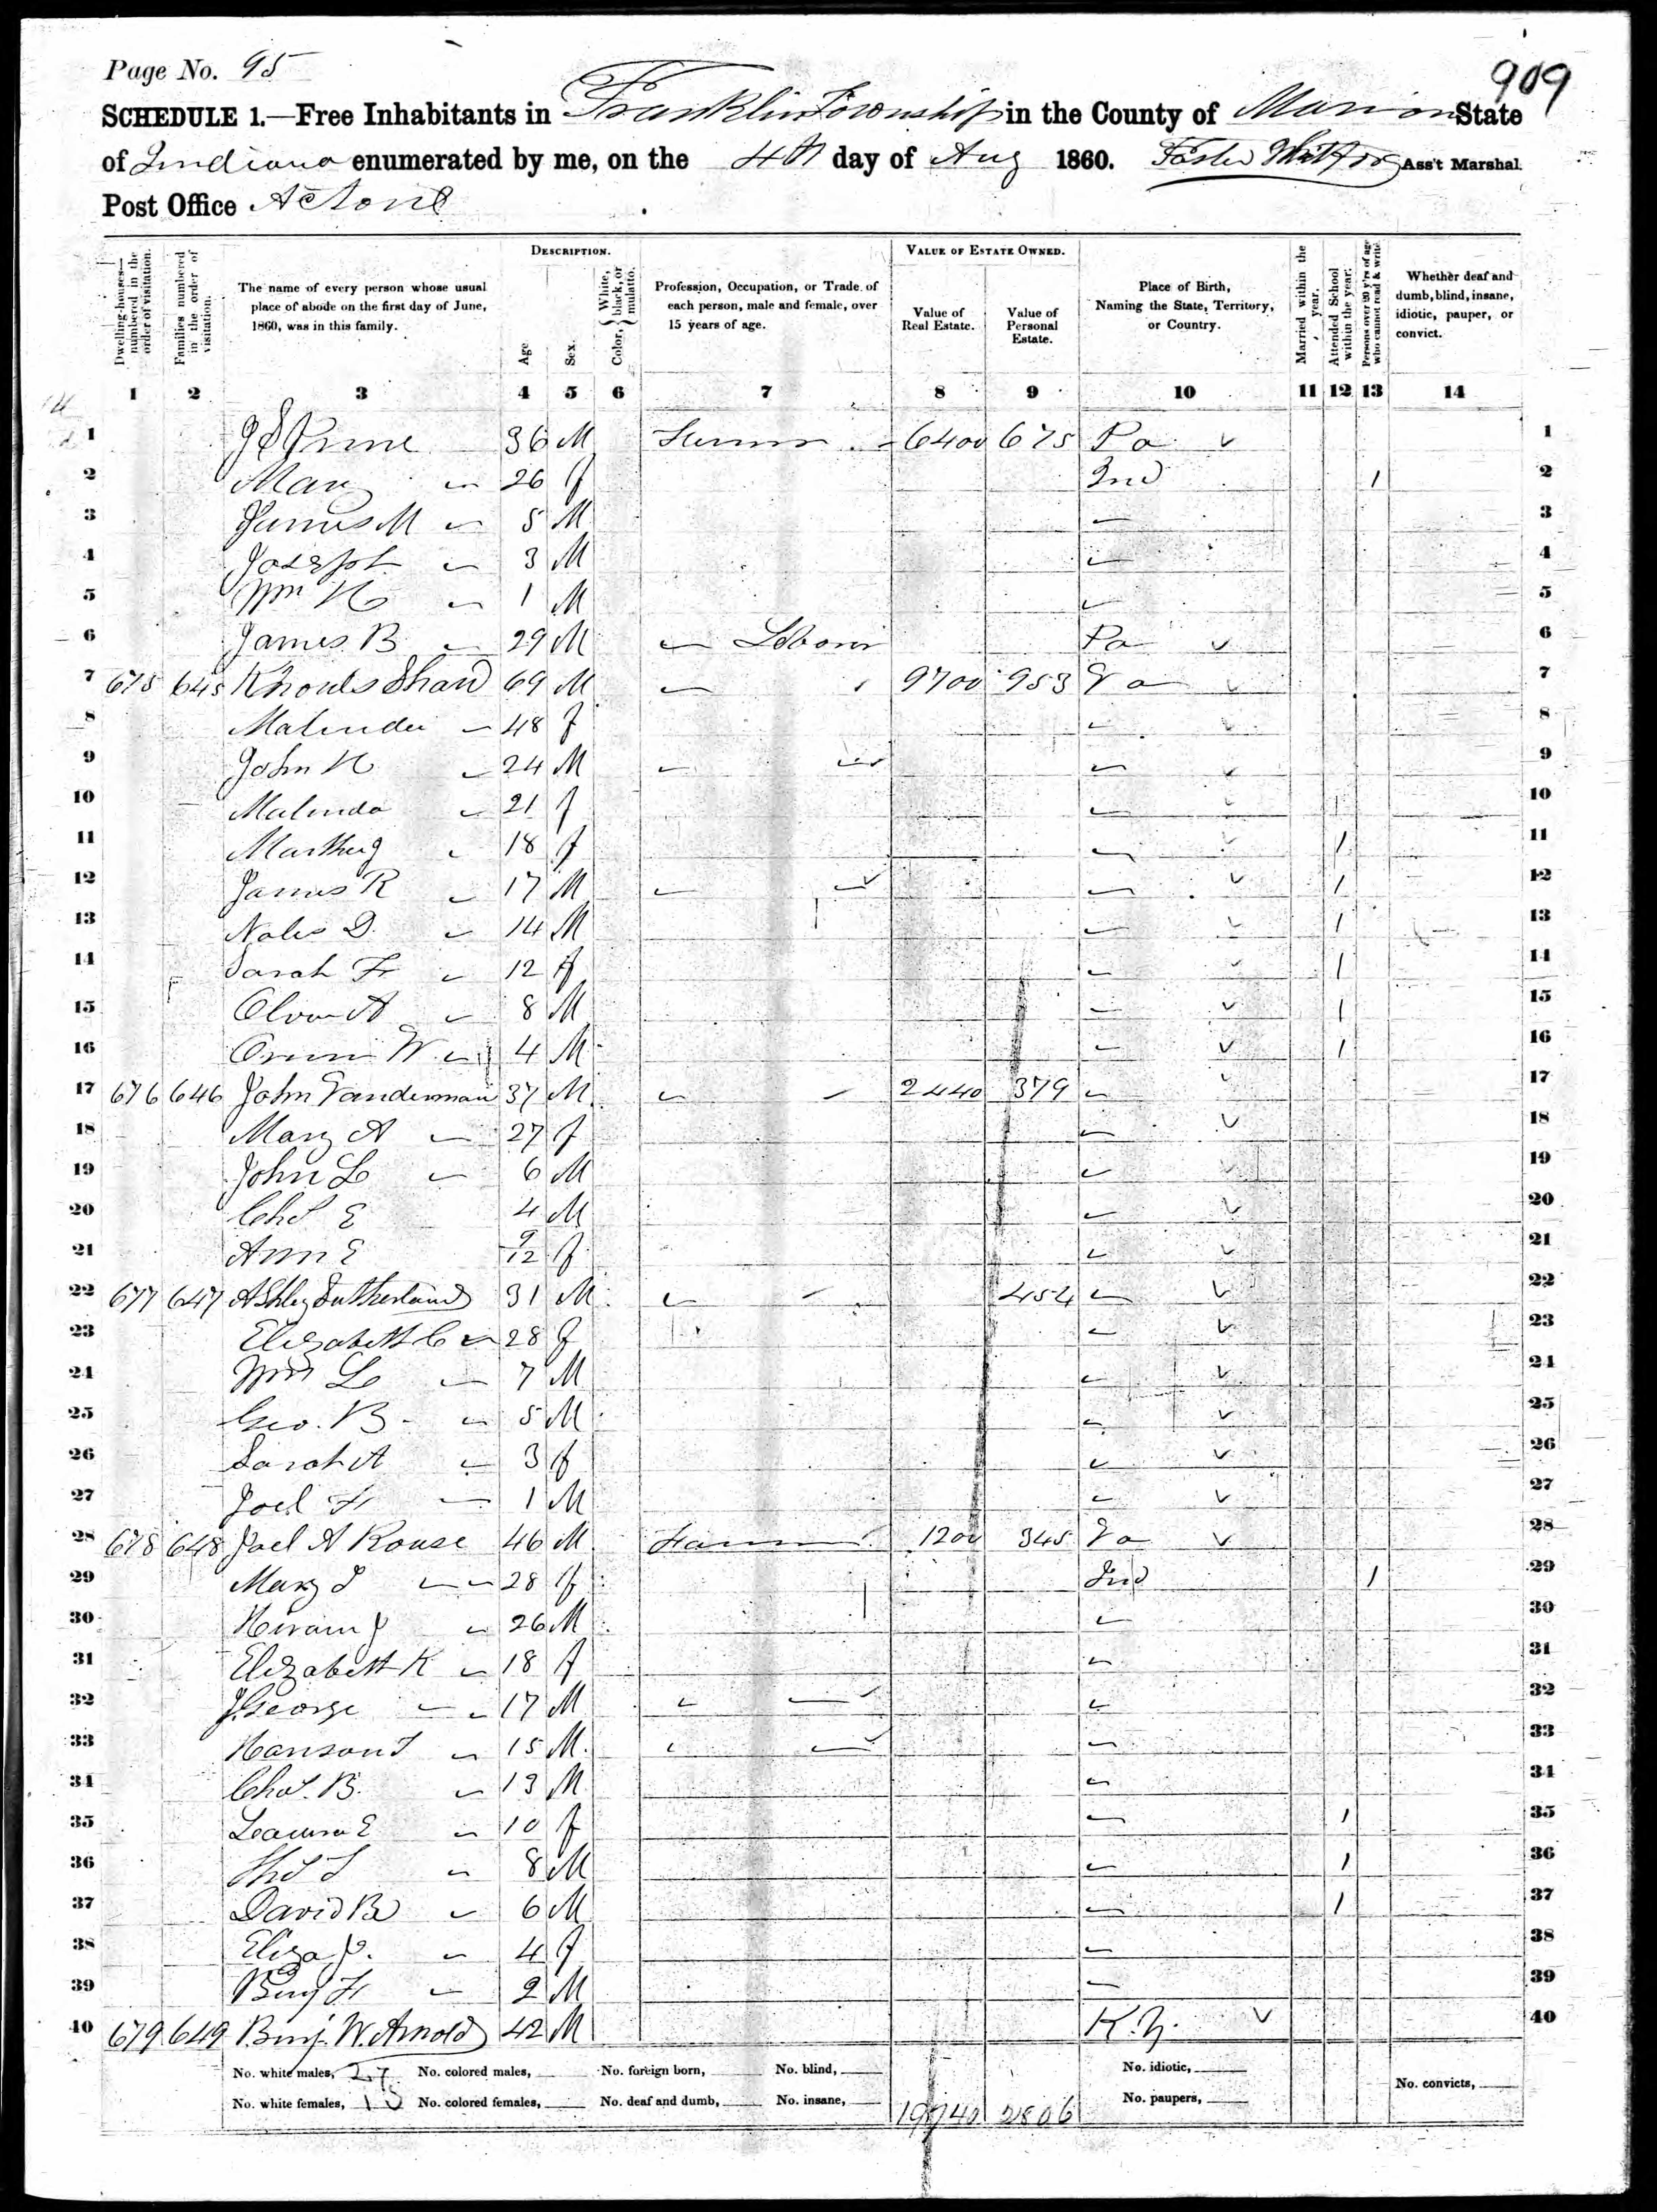 Page No. 95
909
SCHEDULE 1.—Free Inhabitants in Franklin Township in the County of Marion State
of Indiana enumerated by me, on the 4th day of Aug 1860. Ass't Marshal.
Post Office Acton
Dwelling-houses—numbered in the order of visitation.
Families numbered in the order of visitation.
The name of every person whose usual place of abode on the first day of June, 1860, was in this family.
DESCRIPTION.
Age
Sex.
Color, { White, black, or mulatto.
Profession, Occupation, or Trade of each person, male and female, over 15 years of age.
VALUE OF ESTATE OWNED.
Value of Real Estate.
Value of Personal Estate.
Place of Birth, Naming the State, Territory, or Country.
Married within the year.
Attended School within the year.
Persons over 20 y'rs of age who cannot read & write.
Whether deaf and dumb, blind, insane, idiotic, pauper, or convict.
1 2 3 4 5 6 7 8 9 10 11 12 13 14
1 36 M 6400 675 Pa 1
2 Mary 26 f Ind / 2
3 James M 5 M 3
4 Joseph 3 M 4
5 Wm H 1 M 5
6 James B 29 M Pa 6
7 675 645 Knowls Shaw 69 M 9700 953 Va 7
8 Malinda 48 f 8
9 John H 24 M 9
10 Malinda 21 f 10
11 18 f / 11
12 James R 17 M / 12
13 D. 14 M / 13
14 Sarah F 12 f / 14
15 8 M / 15
16 W 4 M / 16
17 676 646 John Vanderman 37 M 2440 379 17
18 Mary A 27 f 18
19 John L 6 M 19
20 Chs E 4 M 20
21 Ann E 9/12 f 21
22 677 647 Ashley Sutherland 31 M 454 22
23 Elizabeth C 28 f 23
24 Wm L 7 M 24
25 Geo. B 5 M 25
26 Sarah A 3 f 26
27 Joel F 1 M 27
28 678 648 Joel A Rouse 46 M Farmer 1200 345 Va 28
29 Mary 28 f Ind / 29
30 Hiram J 26 M 30
31 Elizabeth K 18 f 31
32 J. George 17 M 32
33 Hanson 15 M 33
34 Chas. B. 13 M 34
35 Laura E 10 f / 35
36 8 M / 36
37 David B 6 M / 37
38 Eliza J. 4 f 38
39 Benj F 2 M 39
40 679 649 Benj. W. Arnold 42 M K.y. 40
No. white males, 27 No. colored males, No. foreign born, No. blind, No. idiotic,
No. convicts,
No. white females, 13 No. colored females, No. deaf and dumb, No. insane, 19740 2806 No. paupers,